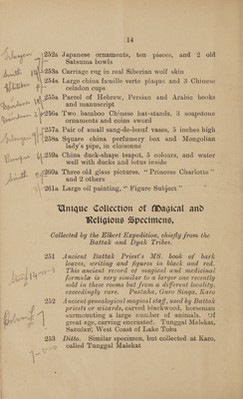 14
252a Japanese ornaments, ten pieces, and 2 old
Satsuma bowls
253a Carriage rug in real Siberian wolf skin
254a Large china famille verte plaque and 3 Chinese
celadon cups
255a Parcel of Hebrew, Persian and Arabic books
and manuscript
256a Two bamboo Chinese hat-stands, 3 soapstone
ornaments and coins sword
257a Pair of small sang-de-bœuf vases, 5 inches high
258a Square china perfumery box and Mongolian
lady's pipe, in cloisonne
259a China duck-shape teapot, 5 colours, and water
well with ducks and lotus inside
260a Three old glass pictures. "Princess Charlotte"
and 2 others
261a Large oil painting, "Figure Subject"
Unique Collection of Magical and
Religious Specimens,
Collected by the Elkert Expedition, chiefly from the
Battak and Dyak Tribes.
251 Ancient Battak Priest's MS. book of bark
leaves, writing and figures in black and red.
This ancient record of magical and medicinal
formulæ is very similar to a larger one recently
sold in these rooms but from a different locality,
exceedingly rare. Pustaha, Guru Singa, Karo
252 Ancient genealogical magical staff, used by Battak
priests or wizards, carved blackwood, horseman
surmounting a large number of animals. Of
great age, carving encrusted. Tunggal Malekat,
West Coast of Lake Toba
253 Ditto. Similar specimen, but collected at Karo,
called Tunggal Malekat